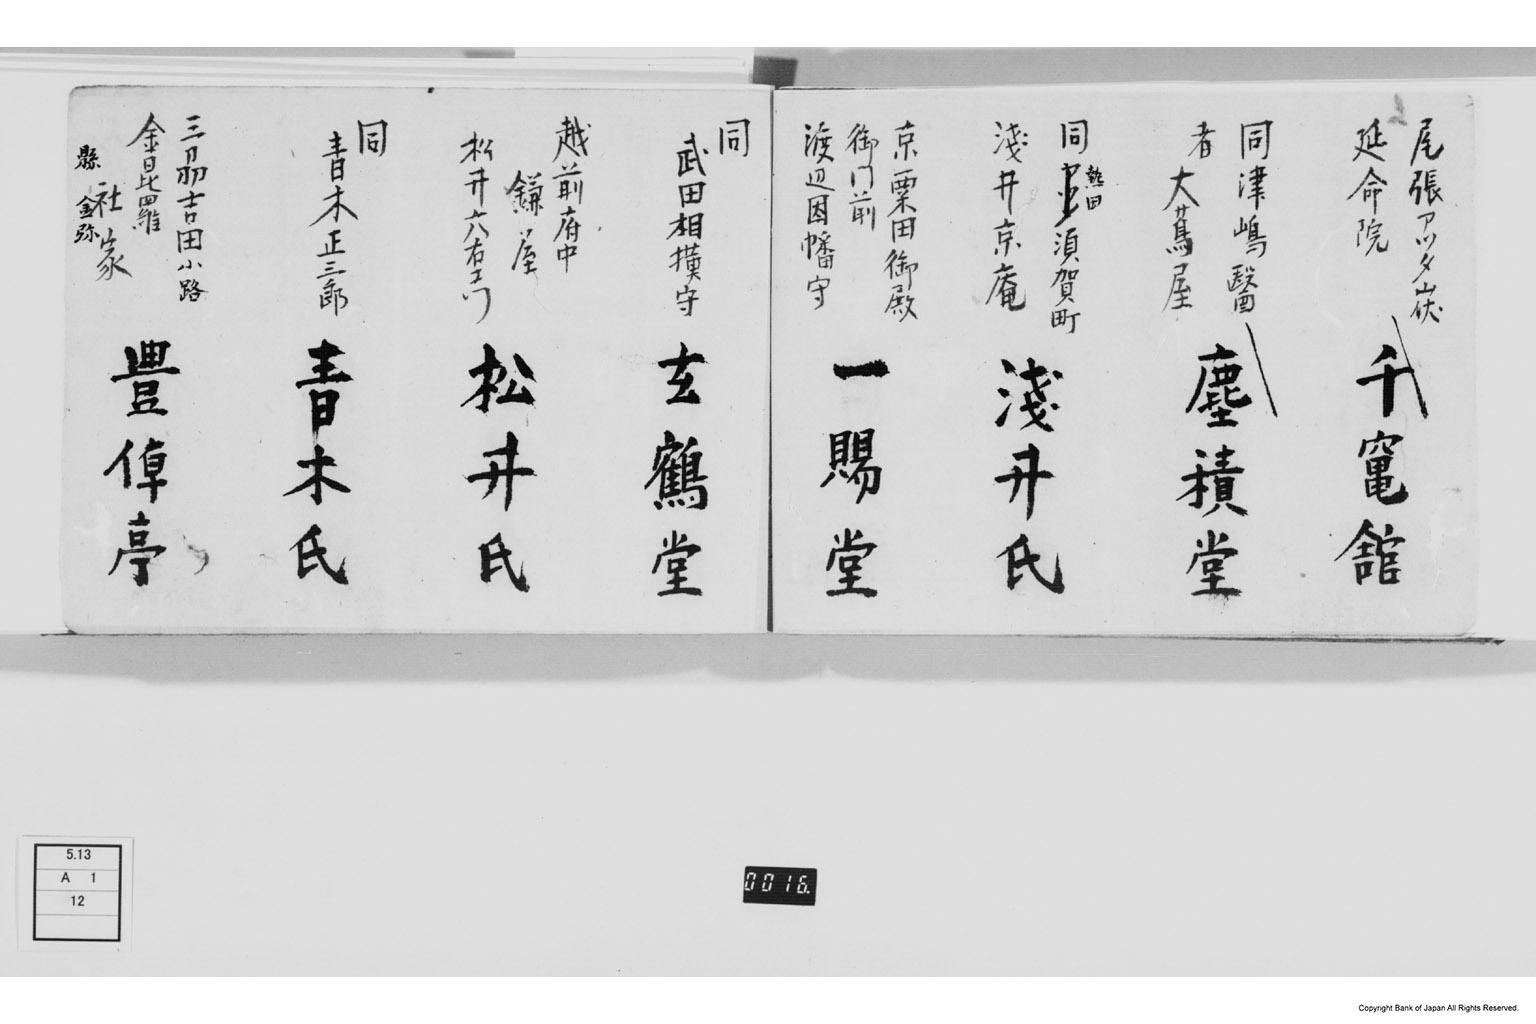 尾張アツタ
延命院
千竃舘
同津嶋醫
者
大蔦屋
塵積堂
同
熱田
須賀町
淺井京庵
淺井氏
京粟田御殿
御門前
渡辺因幡守
一賜堂
同
武田相摸守
玄鶴堂
越前府中
鎌屋
松井六右エ門
松井氏
同
青木正三郎
青木氏
三刕吉田小路
金昆羅
社家
縣 金弥
豊倬亭
5.13
A 1
12
0016.
Copyright Bank of Japan All Rights Reserved.